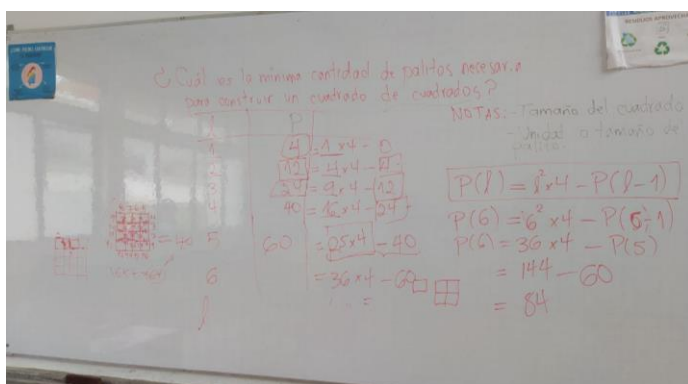 ¿Cuál es la mínima cantidad de palitos necesaria
para construir un cuadrado de cuadrados?
NOTAS: -Tamaño del cuadrado
- Unidad o tamaño de
palito.
l P
1 4 = 1 x 4 - 0
2 12 = 4 x 4 - 4
3 24 = 9 x 4 - 12
4 40 = 16 x 4 - 24
5 60 = 25 x 4 - 40
6 = 36 x 4 - 60
l
= 40
P(l) = l² x 4 - P(l-1)
P(6) = 6² x 4 - P(6-1)
P(6) = 36 x 4 - P(5)
= 144 - 60
= 84